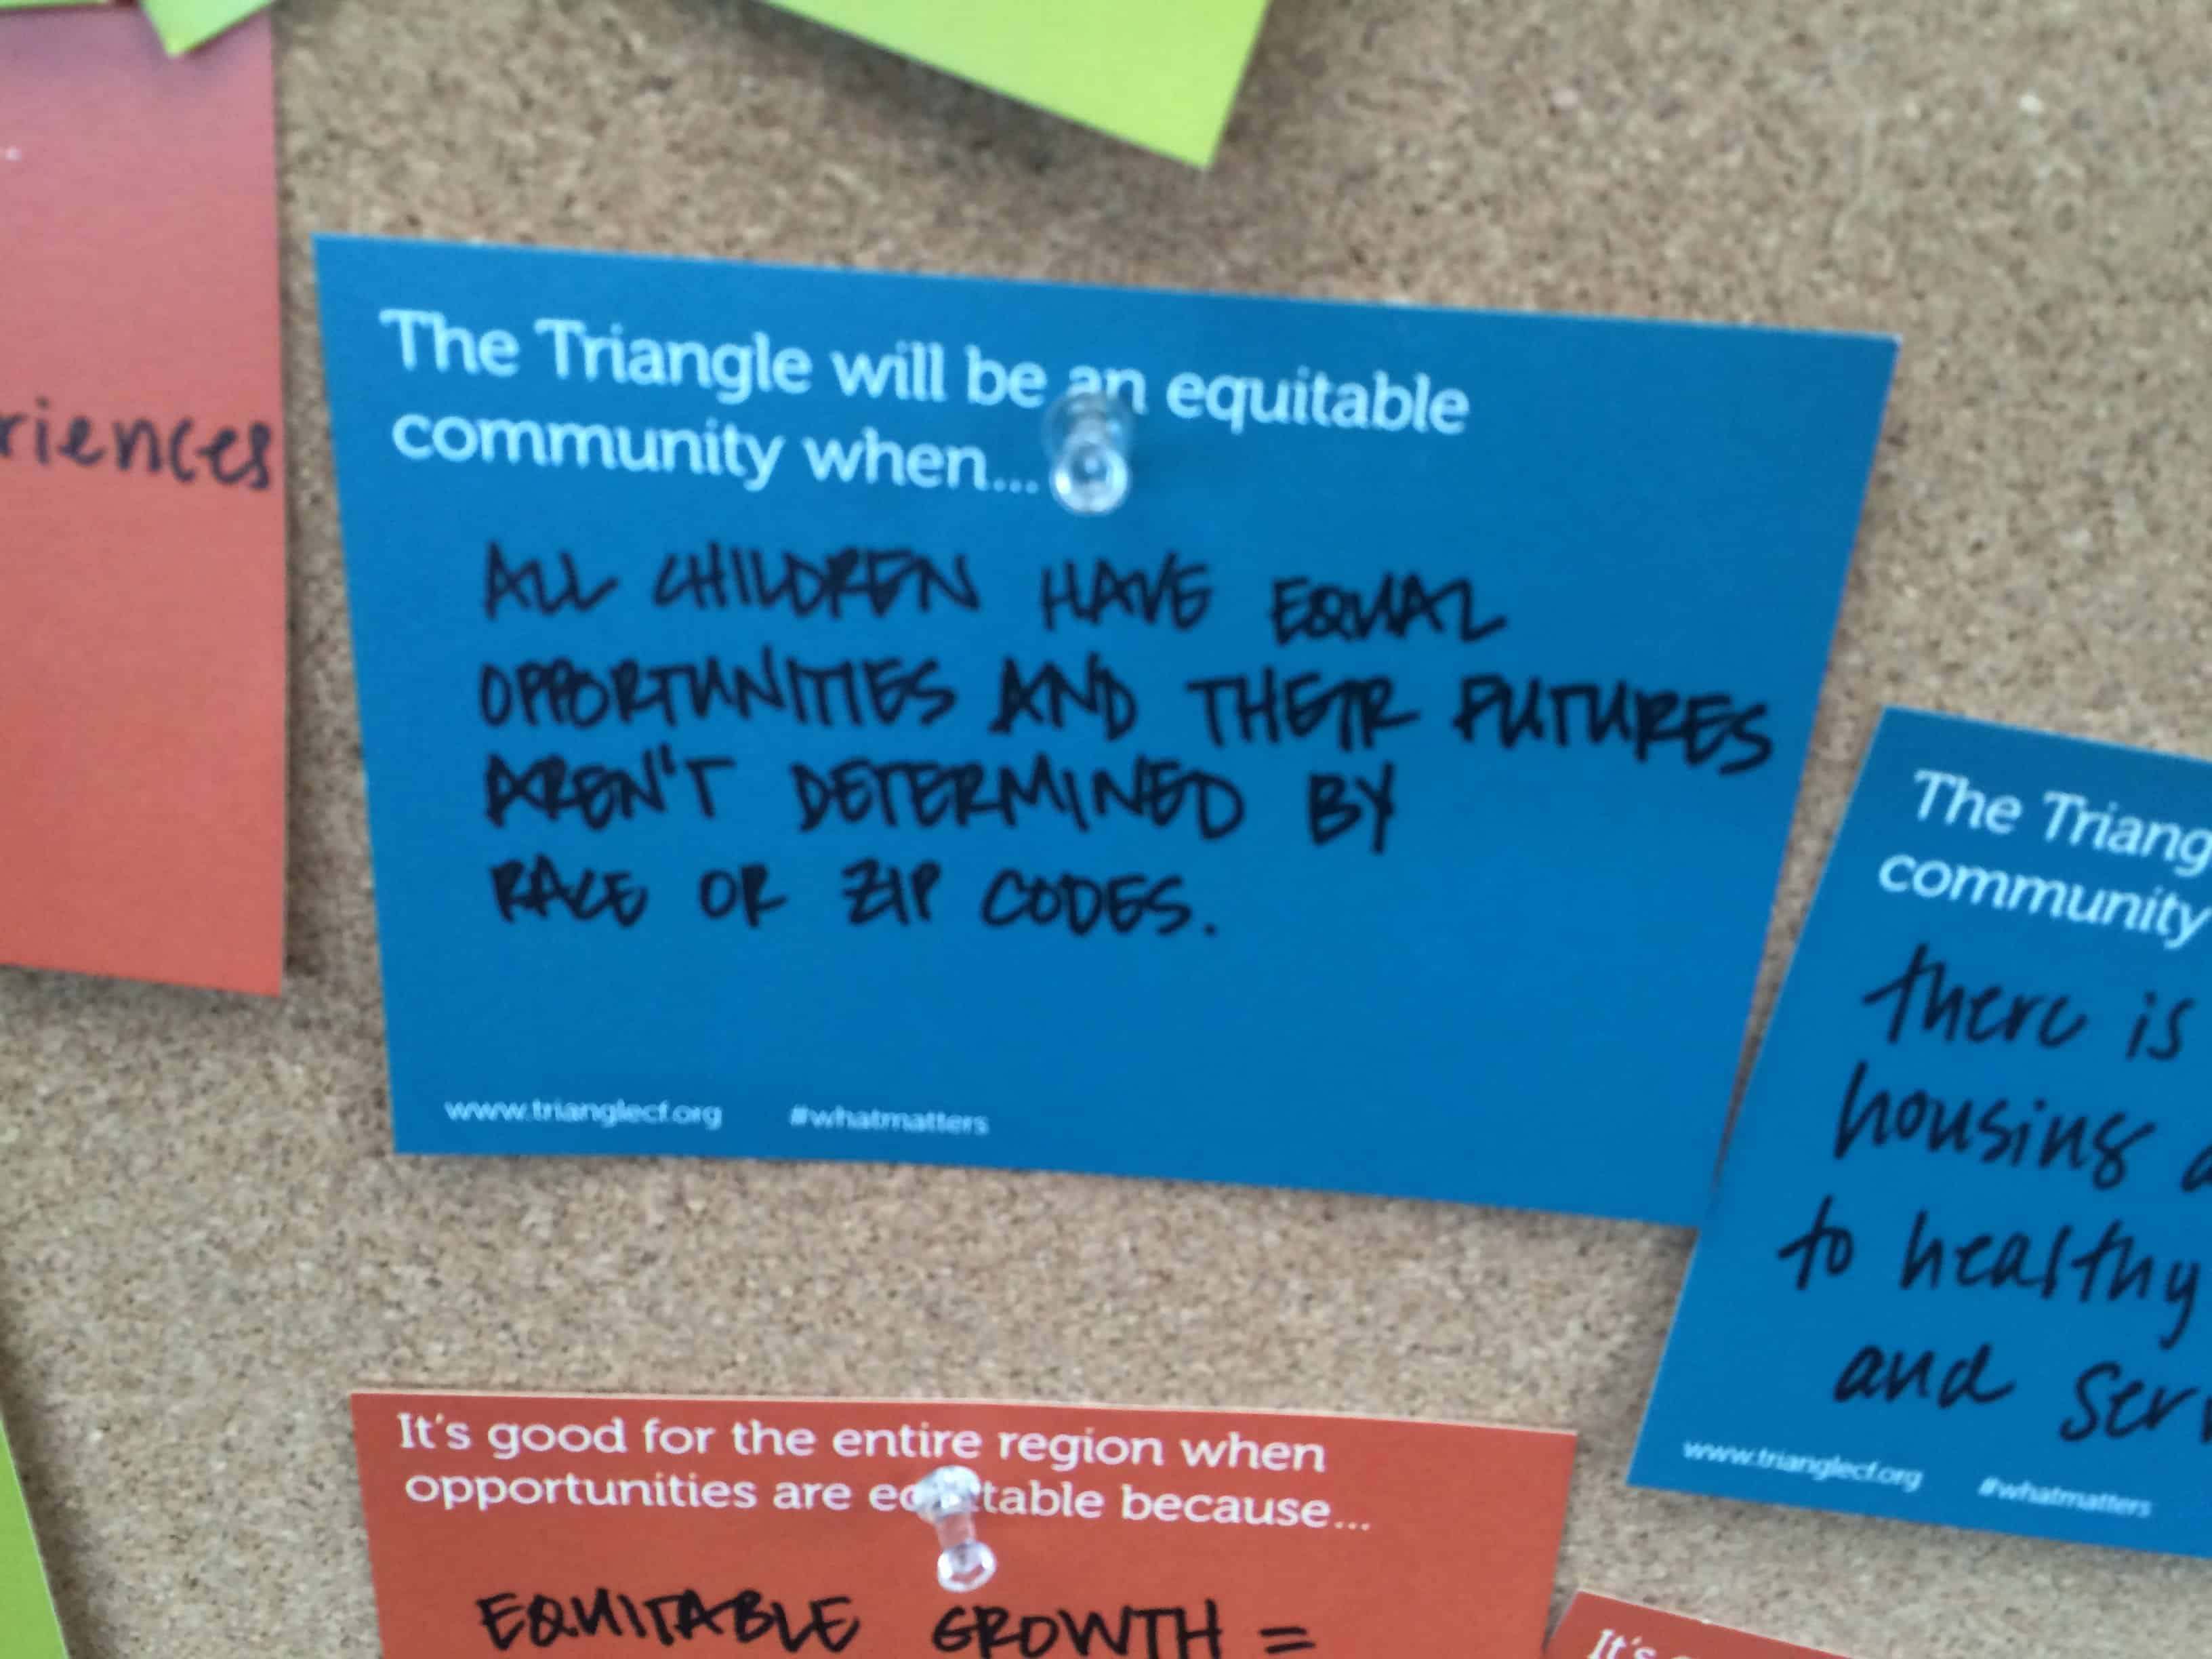 riences
The Triangle will be an equitable
community when...
ALL CHILDREN HAVE EQUAL
OPPORTUNITIES AND THEIR FUTURES
AREN'T DETERMINED BY
RACE OR ZIP CODES.
www.trianglecf.org #whatmatters
The Triang
community
there is
housing a
to healthy
and serv
www.trianglecf.org #whatmatters
It's good for the entire region when
opportunities are equitable because...
EQUITABLE GROWTH =
It's